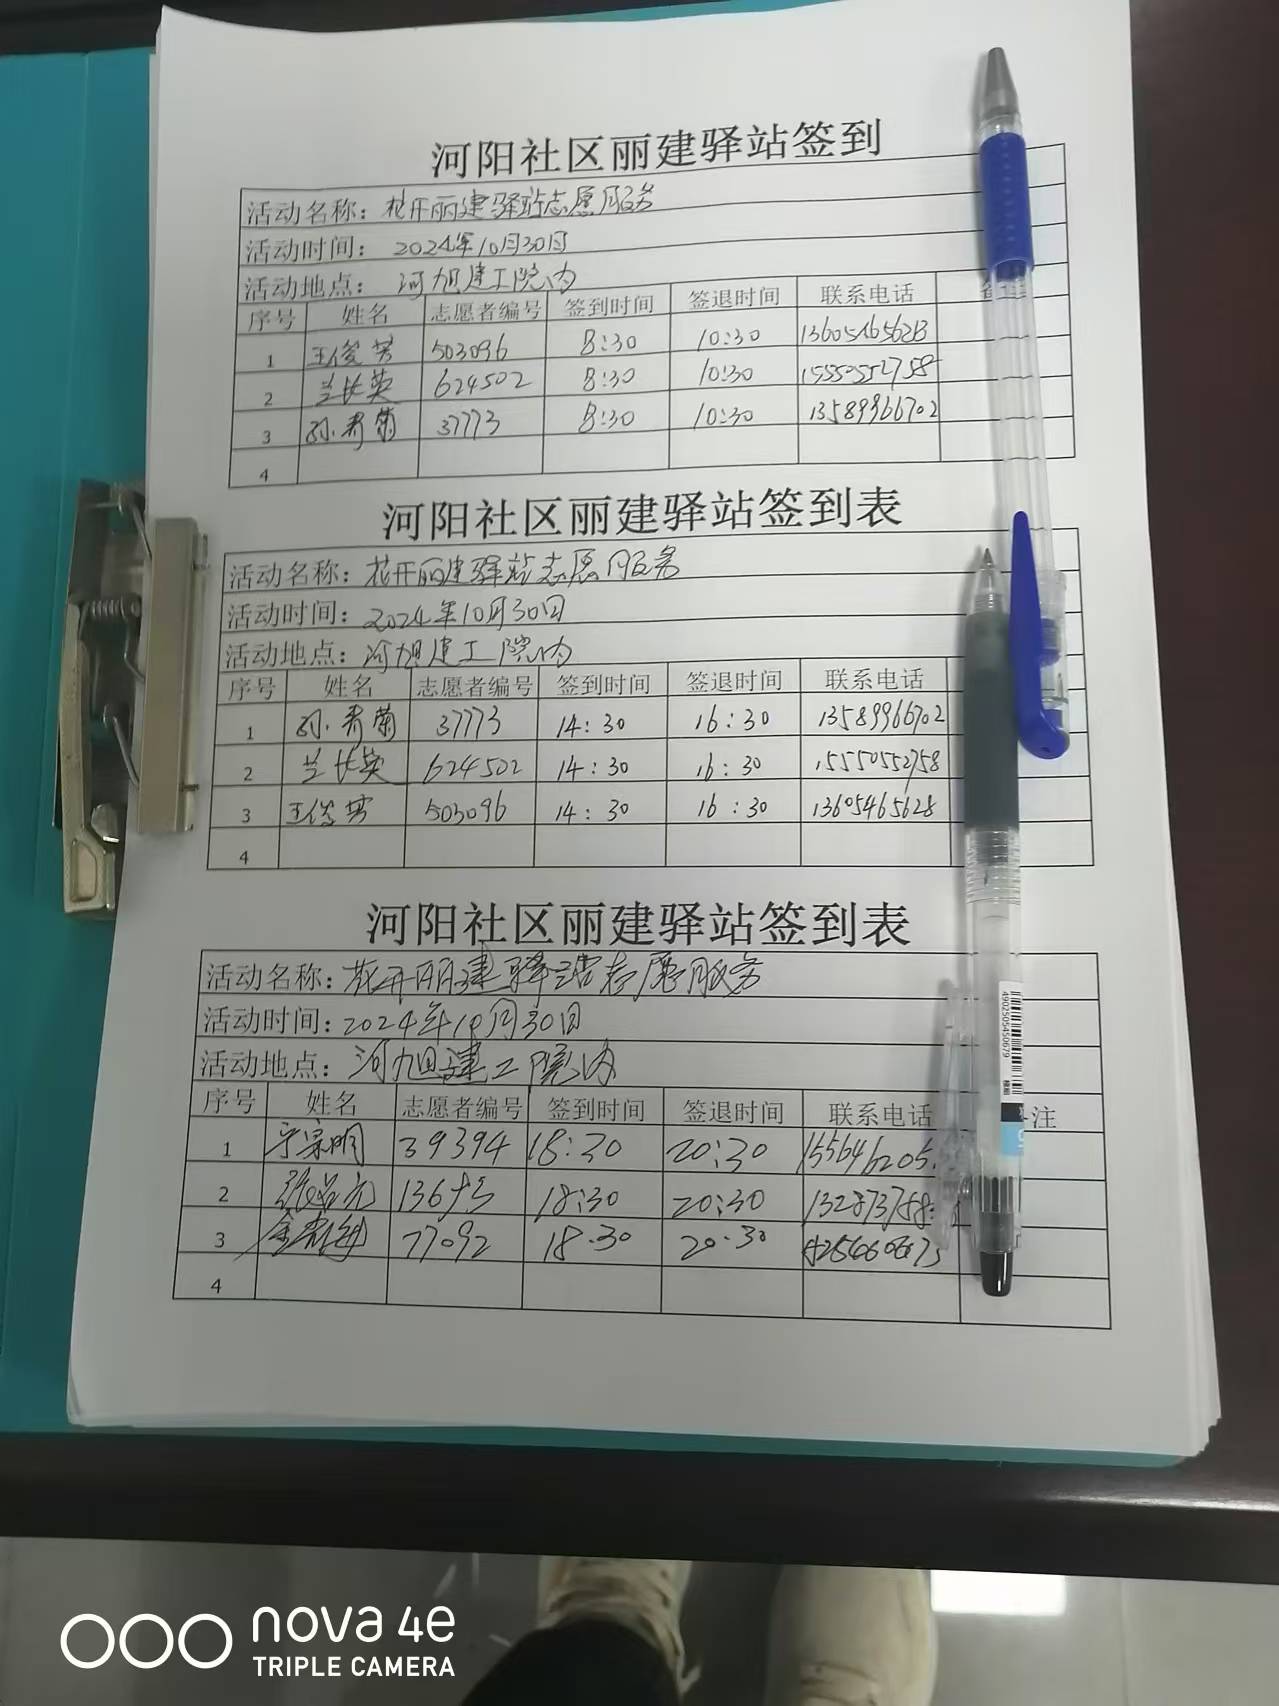 河阳社区丽建驿站签到
活动名称：花开丽建驿站志愿服务
活动时间：2024年10月30日
活动地点：河旭建工院内
序号 姓名 志愿者编号 签到时间 签退时间 联系电话
1 王俊芳 503096 8:30 10:30
2 兰长英 624502 8:30 10:30 15550552758
3 孙秀菊 37773 8:30 10:30 13589966702
4
河阳社区丽建驿站签到表
活动名称：花开丽建驿站志愿服务
活动时间：2024年10月30日
活动地点：河旭建工院内
序号 姓名 志愿者编号 签到时间 签退时间 联系电话
1 孙秀菊 37773 14:30 16:30 13589966702
2 兰长英 624502 14:30 16:30 15550552758
3 王俊芳 503096 14:30 16:30 13605465628
4
河阳社区丽建驿站签到表
活动名称：花开丽建驿站志愿服务
活动时间：2024年10月30日
活动地点：河旭建工院内
序号 姓名 志愿者编号 签到时间 签退时间 联系电话 注
1 39394 18:30 20:30
2 18:30 20:30
3 77092 18:30 20:30
4
4902505450679
nova 4e
TRIPLE CAMERA